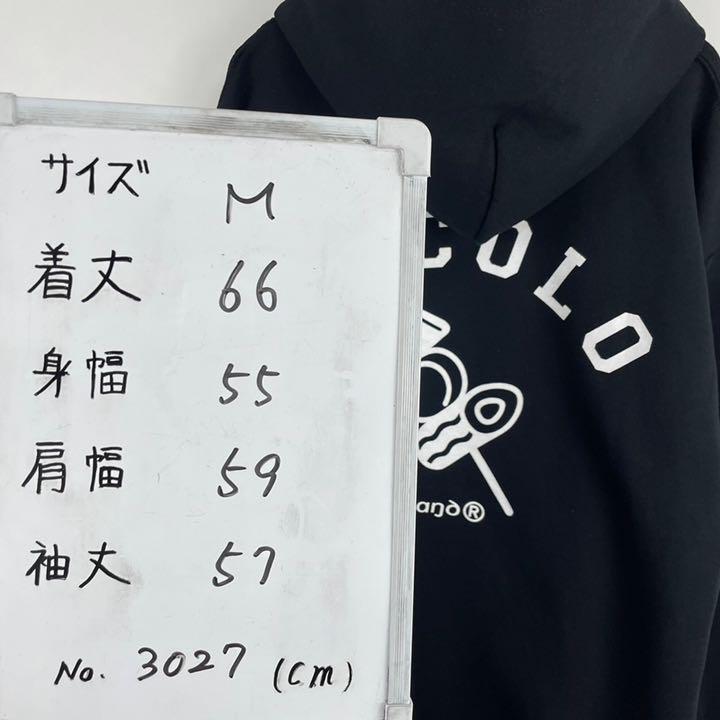 サイズ M
着丈 66
身幅 55
肩幅 59
袖丈 57
No. 3027 (cm)
COLO
and®